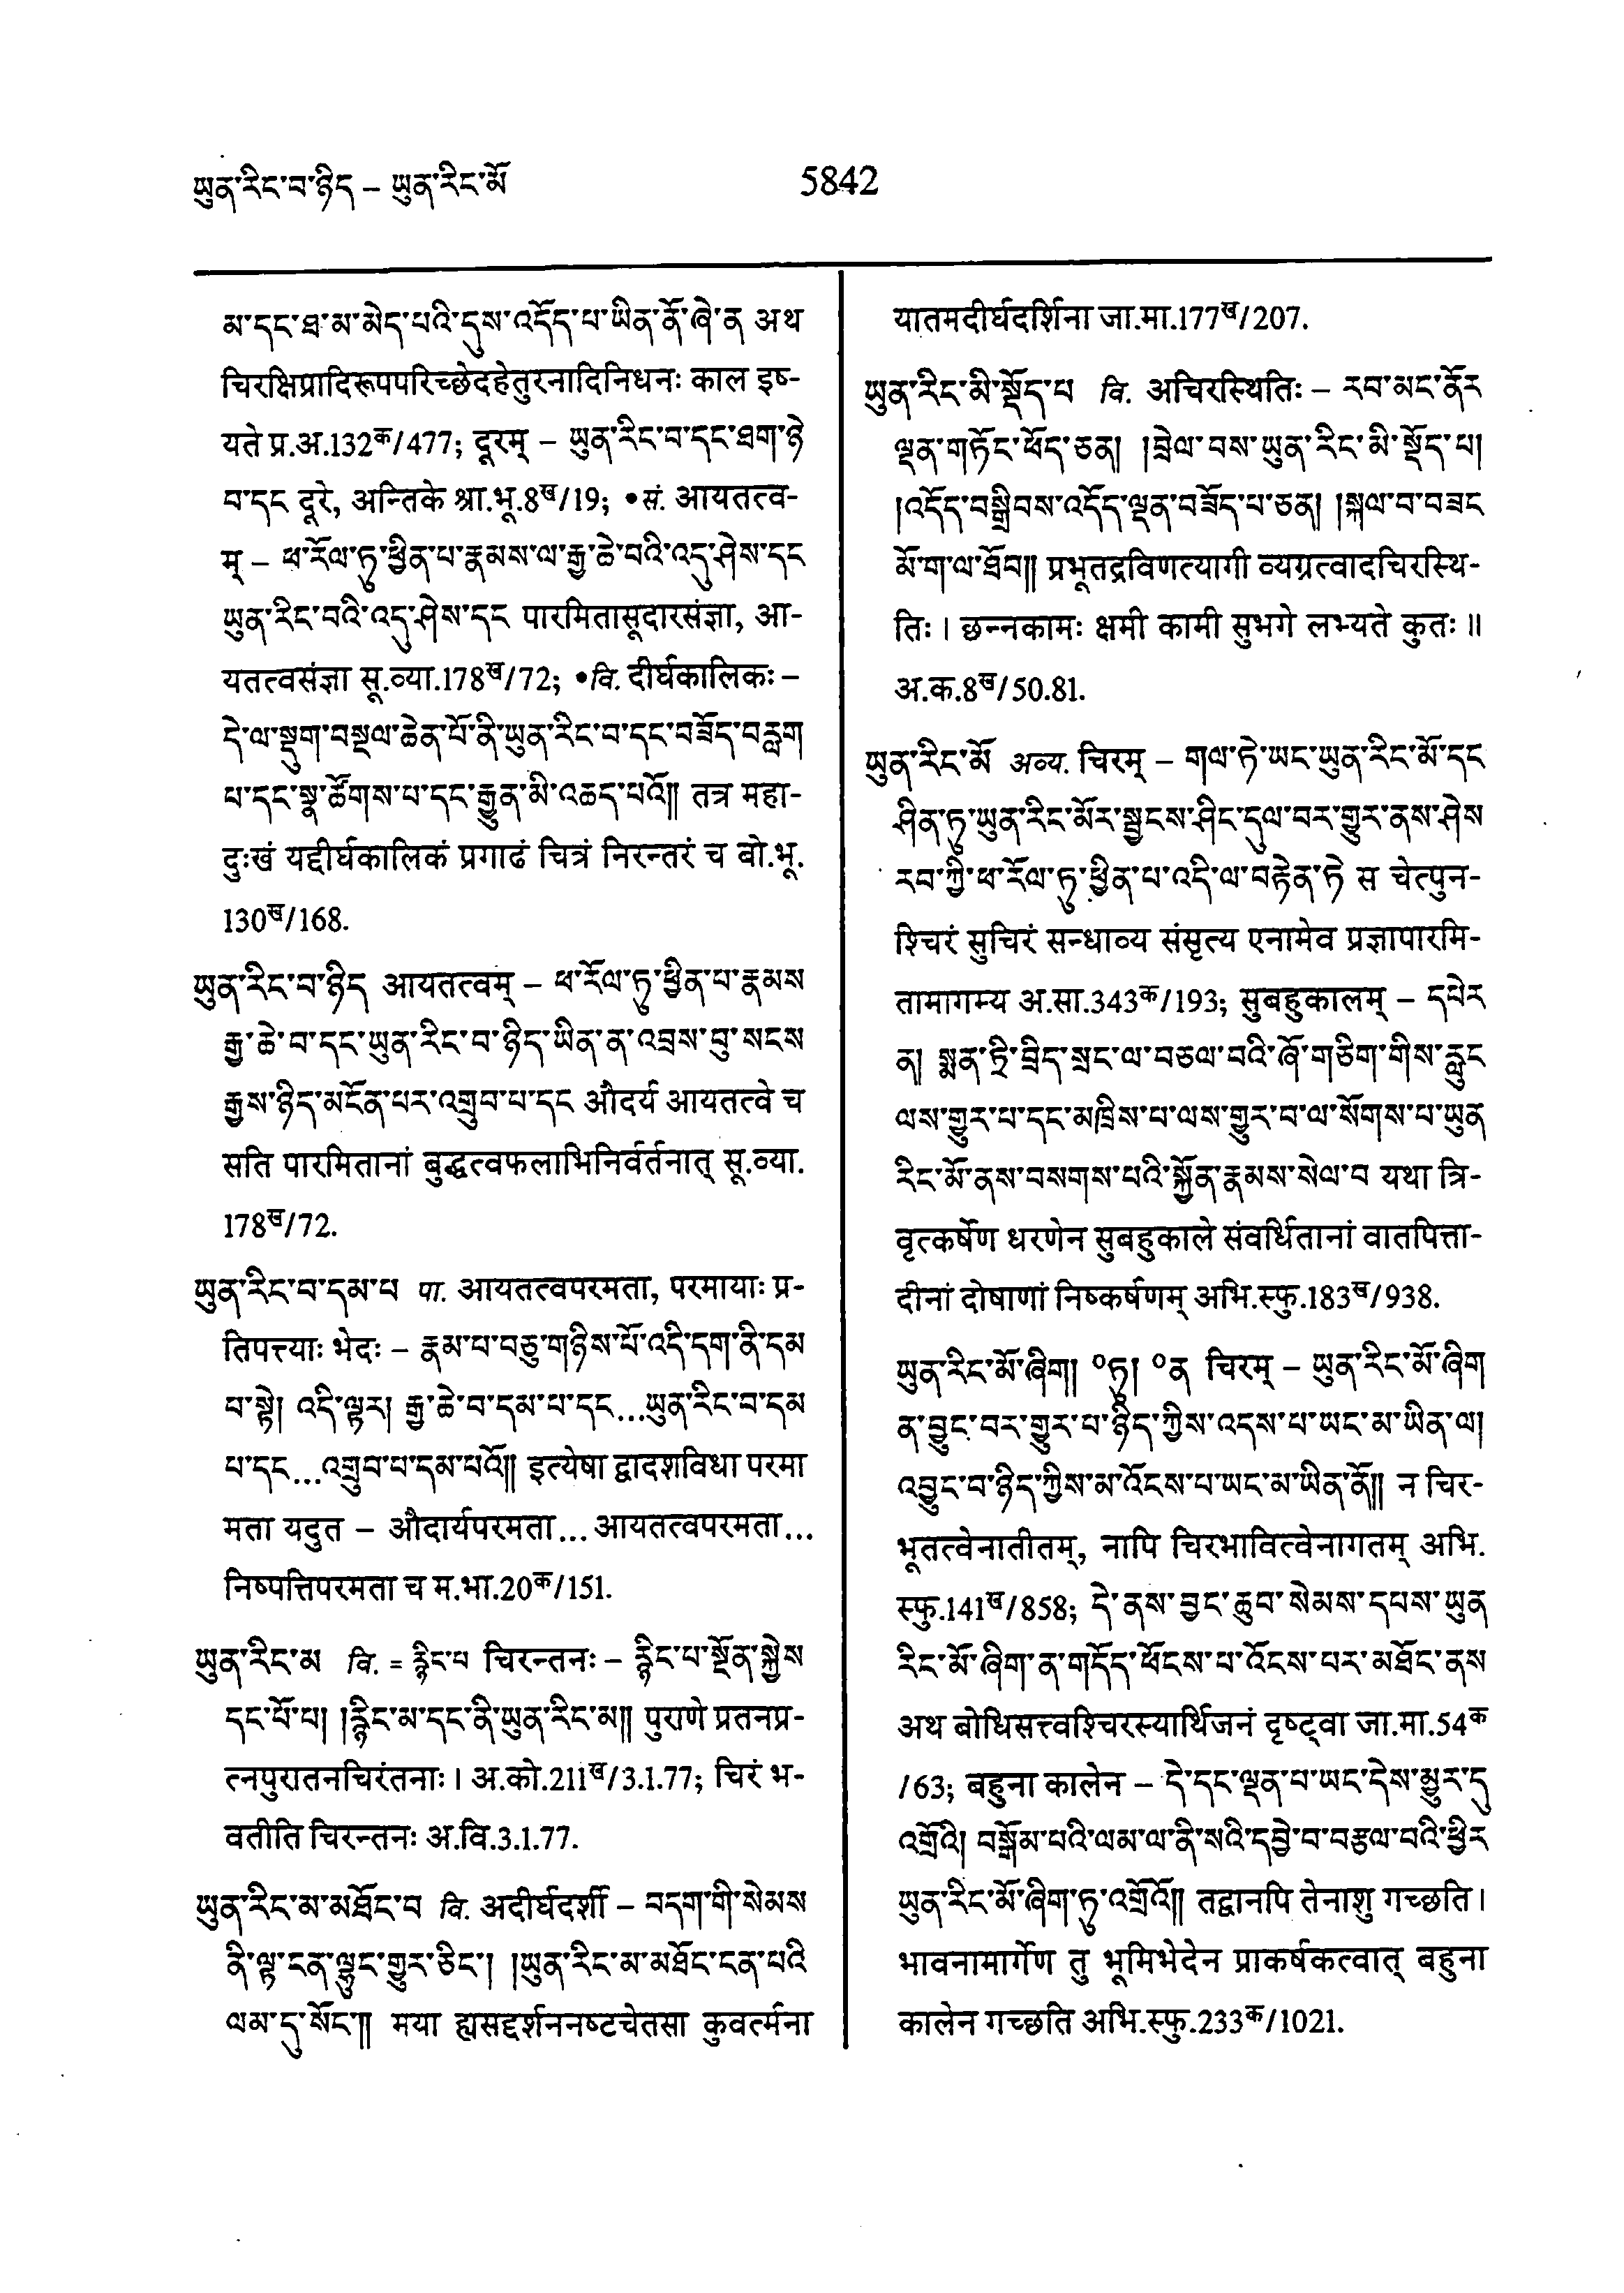 ཡུན་རིང་བ་ཉིད – ཡུན་རིང་མོ
5842
མ་དང་ཐ་མ་མེད་པའི་དུས་འདོད་པ་ཡིན་ནོ་ཞེ་ན अथ
चिरक्षिप्रादिरूपपरिच्छेदहेतुरनादिनिधनः काल इष्-
यते प्र.अ.132क/477; दूरम् – ཡུན་རིང་བ་དང་ཐག་ཉེ
བ་དང दूरे, अन्तिके श्रा.भू.8ख/19; •सं. आयतत्व-
म् – ཕ་རོལ་ཏུ་ཕྱིན་པ་རྣམས་ལ་རྒྱ་ཆེ་བའི་འདུ་ཤེས་དང
ཡུན་རིང་བའི་འདུ་ཤེས་དང पारमितासूदारसंज्ञा, आ-
यतत्वसंज्ञा सू.व्या.178ख/72; •वि. दीर्घकालिकः –
དེ་ལ་སྡུག་བསྔལ་ཆེན་པོ་ནི་ཡུན་རིང་བ་དང་བཟོད་བརླག
པ་དང་སྣ་ཚོགས་པ་དང་རྒྱུན་མི་འཆད་པའོ༎ तत्र महा-
दुःखं यद्दीर्घकालिकं प्रगाढं चित्रं निरन्तरं च बो.भू.
130ख/168.
ཡུན་རིང་བ་ཉིད आयतत्वम् – ཕ་རོལ་ཏུ་ཕྱིན་པ་རྣམས
རྒྱ་ཆེ་བ་དང་ཡུན་རིང་བ་ཉིད་ཡིན་ན་འབྲས་བུ་སངས
རྒྱས་ཉིད་མངོན་པར་འགྲུབ་པ་དང औदर्य आयतत्वे च
सति पारमितानां बुद्धत्वफलाभिनिर्वर्तनात् सू.व्या.
178ख/72.
ཡུན་རིང་བ་དམ་པ पा. आयतत्वपरमता, परमायाः प्र-
तिपत्त्याः भेदः – རྣམ་པ་བཅུ་གཉིས་པོ་འདི་དག་ནི་དམ
པ་སྟེ། འདི་ལྟར། རྒྱ་ཆེ་བ་དམ་པ་དང...ཡུན་རིང་བ་དམ
པ་དང...འགྲུབ་པ་དམ་པའོ༎ इत्येषा द्वादशविधा परमा
मता यदुत – औदार्यपरमता... आयतत्वपरमता...
निष्पत्तिपरमता च म.भा.20क/151.
ཡུན་རིང་མ वि. = རྙིང་པ चिरन्तनः – རྙིང་པ་སྔོན་སྐྱེས
དང་པོ་པ། །རྙིང་མ་དང་ནི་ཡུན་རིང་མ༎ पुराणे प्रतनप्र-
त्नपुरातनचिरंतनाः । अ.को.211ख/3.1.77; चिरं भ-
वतीति चिरन्तनः अ.वि.3.1.77.
ཡུན་རིང་མ་མཐོང་བ वि. अदीर्घदर्शी – བདག་གི་སེམས
ནི་ལྟ་ངན་ལྷུང་གྱུར་ཅིང་། །ཡུན་རིང་མ་མཐོང་ངན་པའི
ལམ་དུ་སོང་༎ मया ह्यसद्दर्शननष्टचेतसा कुवर्त्मना
यातमदीर्घदर्शिना जा.मा.177ख/207.
ཡུན་རིང་མི་སྡོད་པ वि. अचिरस्थितिः – རབ་མང་ནོར
ལྡན་གཏོང་ཕོད་ཅན། །བྲེལ་བས་ཡུན་རིང་མི་སྡོད་པ།
།འདོད་བསྒྲིབས་འདོད་ལྡན་བཟོད་པ་ཅན། །སྐལ་བ་བཟང
མོ་ག་ལ་ཐོབ༎ प्रभूतद्रविणत्यागी व्यग्रत्वादचिरस्थि-
तिः । छन्नकामः क्षमी कामी सुभगे लभ्यते कुतः ॥
अ.क.8ख/50.81.
ཡུན་རིང་མོ अव्य. चिरम् – གལ་ཏེ་ཡང་ཡུན་རིང་མོ་དང
ཤིན་ཏུ་ཡུན་རིང་མོར་སྦྱངས་ཤིང་དུལ་བར་གྱུར་ནས་ཤེས
རབ་ཀྱི་ཕ་རོལ་ཏུ་ཕྱིན་པ་འདི་ལ་བརྟེན་ཏེ स चेत्पुन-
श्चिरं सुचिरं सन्धाव्य संसृत्य एनामेव प्रज्ञापारमि-
तामागम्य अ.सा.343क/193; सुबहुकालम् – དཔེར
ན། སྨན་ཏྲི་བྲིད་སྲང་ལ་བཅལ་བའི་ཞོ་གཅིག་གིས་རླུང
ལས་གྱུར་པ་དང་མཁྲིས་པ་ལས་གྱུར་བ་ལ་སོགས་པ་ཡུན
རིང་མོ་ནས་བསགས་པའི་སྐྱོན་རྣམས་སེལ་བ यथा त्रि-
वृत्कर्षेण धरणेन सुबहुकाले संवर्धितानां वातपित्ता-
दीनां दोषाणां निष्कर्षणम् अभि.स्फु.183ख/938.
ཡུན་རིང་མོ་ཞིག། °ཏུ། °ན चिरम् – ཡུན་རིང་མོ་ཞིག
ན་བྱུང་བར་གྱུར་པ་ཉིད་ཀྱིས་འདས་པ་ཡང་མ་ཡིན་ལ།
འབྱུང་བ་ཉིད་ཀྱིས་མ་འོངས་པ་ཡང་མ་ཡིན་ནོ༎ न चिर-
भूतत्वेनातीतम्, नापि चिरभावित्वेनागतम् अभि.
स्फु.141ख/858; དེ་ནས་བྱང་ཆུབ་སེམས་དཔས་ཡུན
རིང་མོ་ཞིག་ན་གདོད་ཕོངས་པ་འོངས་པར་མཐོང་ནས
अथ बोधिसत्त्वश्चिरस्यार्थिजनं दृष्ट्वा जा.मा.54क
/63; बहुना कालेन – དེ་དང་ལྡན་བ་ཡང་དེས་མྱུར་དུ
འགྲོའི། བསྒོམ་པའི་ལམ་ལ་ནི་སའི་དབྱེ་བ་བརྩལ་བའི་ཕྱིར
ཡུན་རིང་མོ་ཞིག་ཏུ་འགྲོའོ༎ तद्वानपि तेनाशु गच्छति ।
भावनामार्गेण तु भूमिभेदेन प्राकर्षकत्वात् बहुना
कालेन गच्छति अभि.स्फु.233क/1021.